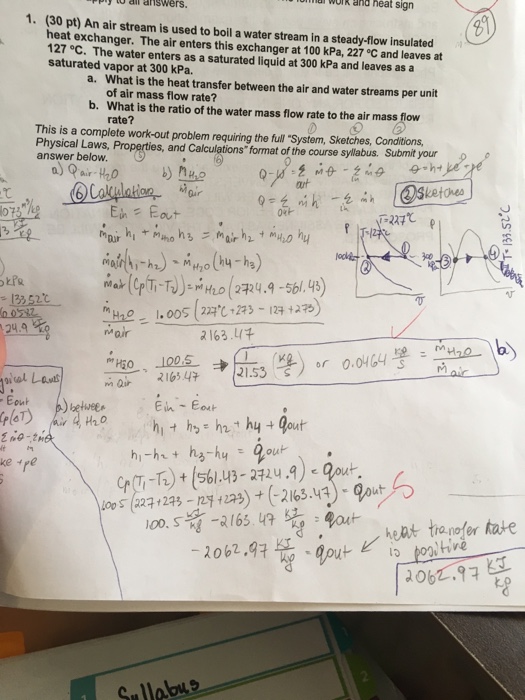 answers.
work and heat sign
89
1. (30 pt) An air stream is used to boil a water stream in a steady-flow insulated
heat exchanger. The air enters this exchanger at 100 kPa, 227 °C and leaves at
127 °C. The water enters as a saturated liquid at 300 kPa and leaves as a
saturated vapor at 300 kPa.
a. What is the heat transfer between the air and water streams per unit
of air mass flow rate?
b. What is the ratio of the water mass flow rate to the air mass flow
rate?
This is a complete work-out problem requiring the full "System, Sketches, Conditions,
Physical Laws, Properties, and Calculations" format of the course syllabus. Submit your
answer below.
a) Q air-H₂O b) ṁ H₂O / ṁ air
⑥ Calculation
② Sketches
Ein = Eout
Q = Σ out ṁh - Σ in ṁh
ṁair h₁ + ṁH₂O h₃ = ṁair h₂ + ṁH₂O h₄
ṁair (h₁-h₂) = ṁH₂O (h₄-h₃)
ṁair (Cp(T₁-T₂)) = ṁH₂O (2724.9 - 561.43)
P T=227°C
T=127°C
P
T=133.52°C
ṁH₂O / ṁair = 1.005 (227°C+273 - 127+273) / 2163.47
ṁH₂O / ṁair = 100.5 / 2163.47 → 1 / 21.53 (kg/s) or 0.0464 kg/s = ṁH₂O / ṁair b)
133.52°C
24.9 kJ/kg
Laws
Eout
ke + pe
a) between
air & H₂O
Ein - Eout
h₁ + h₃ = h₂ + h₄ + qout
h₁-h₂ + h₃-h₄ = qout
Cp(T₁-T₂) + (561.43-2724.9) = qout
1.005 (227+273 - 127+273) + (-2163.47) = qout
100.5 kJ/kg - 2163.47 kJ/kg = qout
-2062.97 kJ/kg = qout
heat transfer rate
is positive
2062.97 kJ/kg
Syllabus
2